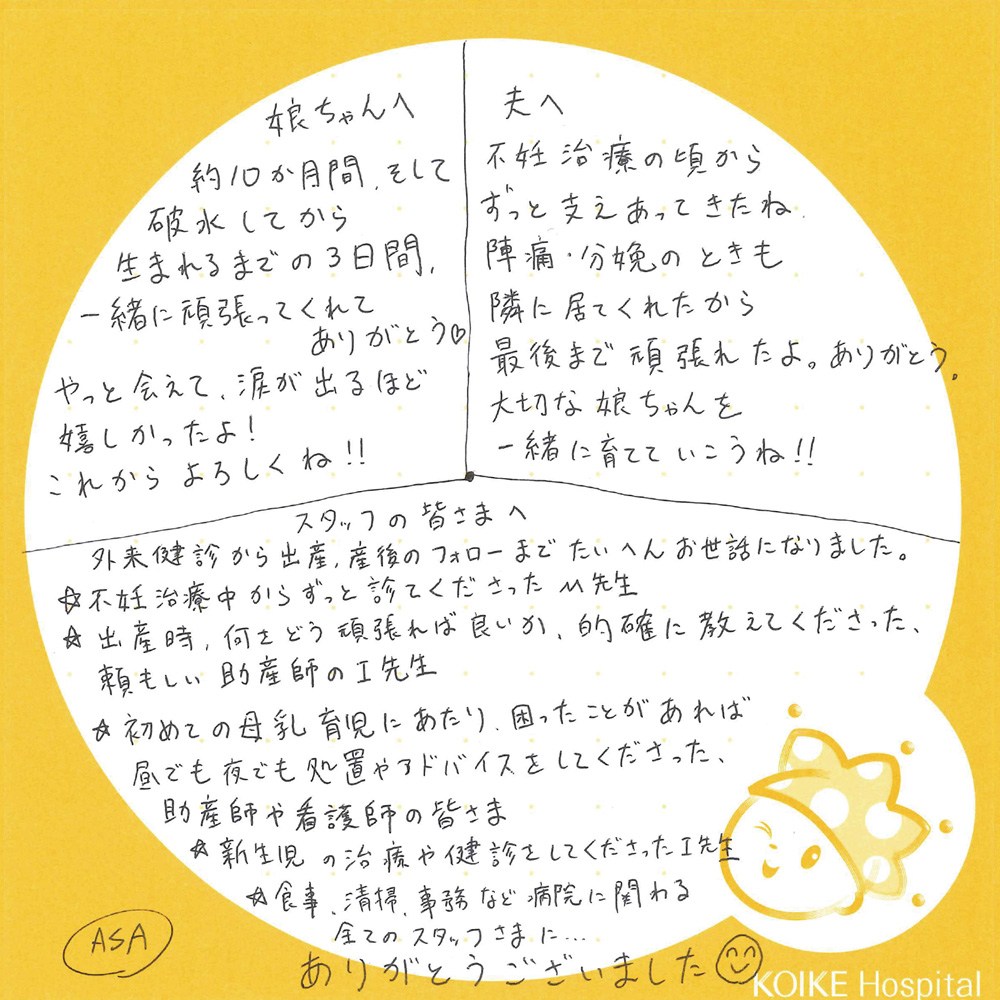 娘ちゃんへ
約10か月間、そして
破水してから
生まれるまでの3日間、
一緒に頑張ってくれて
ありがとう♡
やっと会えて、涙が出るほど
嬉しかったよ!
これからよろしくね!!
夫へ
不妊治療の頃から
ずっと支えあってきたね。
陣痛・分娩のときも
隣に居てくれたから
最後まで頑張れたよ。ありがとう。
大切な娘ちゃんを
一緒に育てていこうね!!
スタッフの皆さまへ
外来健診から出産、産後のフォローまでたいへんお世話になりました。
☆不妊治療中からずっと診てくださったM先生
☆出産時、何をどう頑張れば良いか、的確に教えてくださった、
頼もしい助産師のI先生
☆初めての母乳育児にあたり、困ったことがあれば
昼でも夜でも処置やアドバイスをしてくださった、
助産師や看護師の皆さま
☆新生児の治療や健診をしてくださったI先生
☆食事、清掃、事務など病院に関わる
全てのスタッフさまに…
ありがとうございました
ASA
KOIKE Hospital